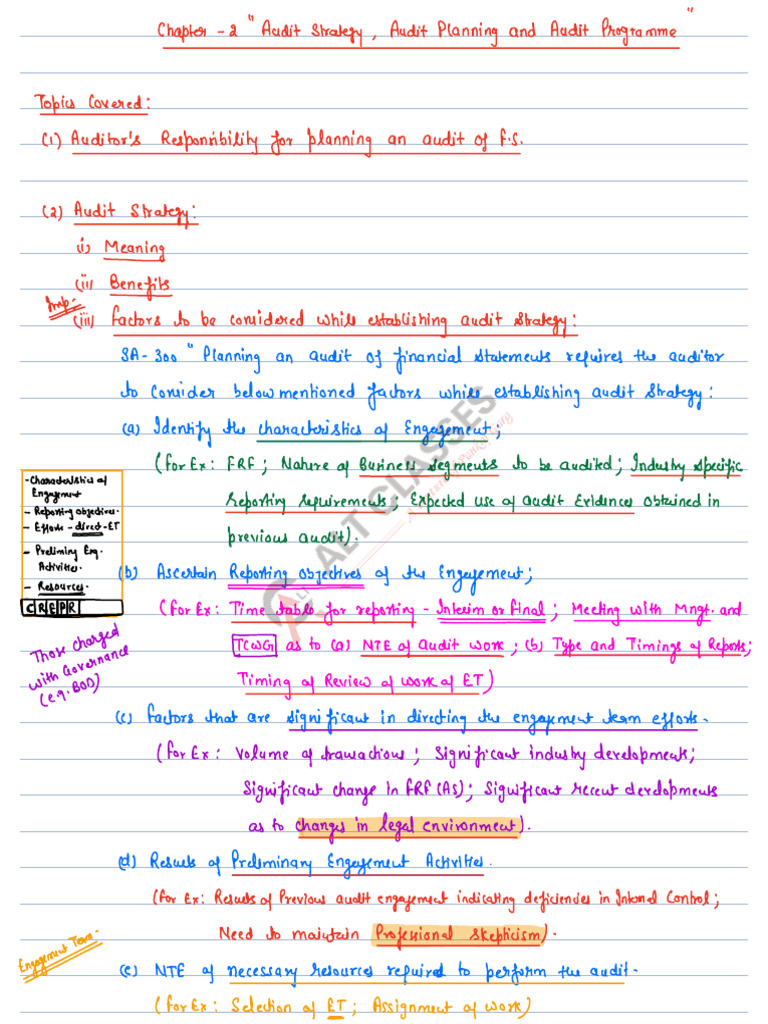 Chapter - 2 "Audit Strategy, Audit Planning and Audit Programme"
Topics Covered:
(1) Auditor's Responsibility for planning an audit of F.S.
(2) Audit Strategy:
(i) Meaning
(ii) Benefits
Imp.
(iii) Factors to be considered while establishing audit strategy:
SA-300 "Planning an audit of financial statements requires the auditor
to consider belowmentioned factors while establishing audit strategy:
(a) Identify the characteristics of Engagement;
(For Ex: FRF; Nature of Business segments to be audited; Industry specific
reporting requirements; Expected use of audit Evidences obtained in
previous audit).
- Characteristics of
Engagement
- Reporting objectives.
- Efforts - direct - ET
- Preliminy Eng.
Activities.
- Resources.
C R E P R
(b) Ascertain Reporting objectives of the Engagement;
(For Ex: Time table for reporting - Interim or final; Meeting with Mngt. and
TCWG as to (a) NTE of audit work; (b) Type and Timings of Reports;
Timing of Review of work of ET)
Those charged
with Governance
(e.g. BOD)
(c) Factors that are significant in directing the engagement team efforts.
(For Ex: Volume of transactions; Significant industry developments;
Significant change in FRF (AS); Significant recent developments
as to changes in legal environment).
(d) Results of Preliminary Engagement Activities.
(For Ex: Results of Previous audit engagement indicating deficiencies in Internal Control;
Need to maintain Professional skepticism).
Engagement Team.
(e) NTE of necessary resources required to perform the audit.
(For Ex: Selection of ET; Assignment of work)
ALT CLASSES